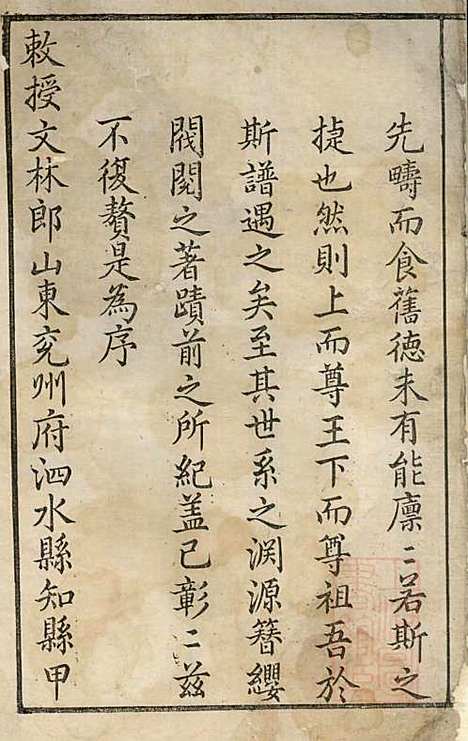 先疇而食舊德未有能廪〻若斯之
捷也然則上而尊王下而尊祖吾於
斯譜遇之矣至其世系之渕源簪纓
閥閱之著蹟前之所紀盖已彰〻兹
不復贅是為序
敕授文林郎山東兖州府泗水縣知縣甲